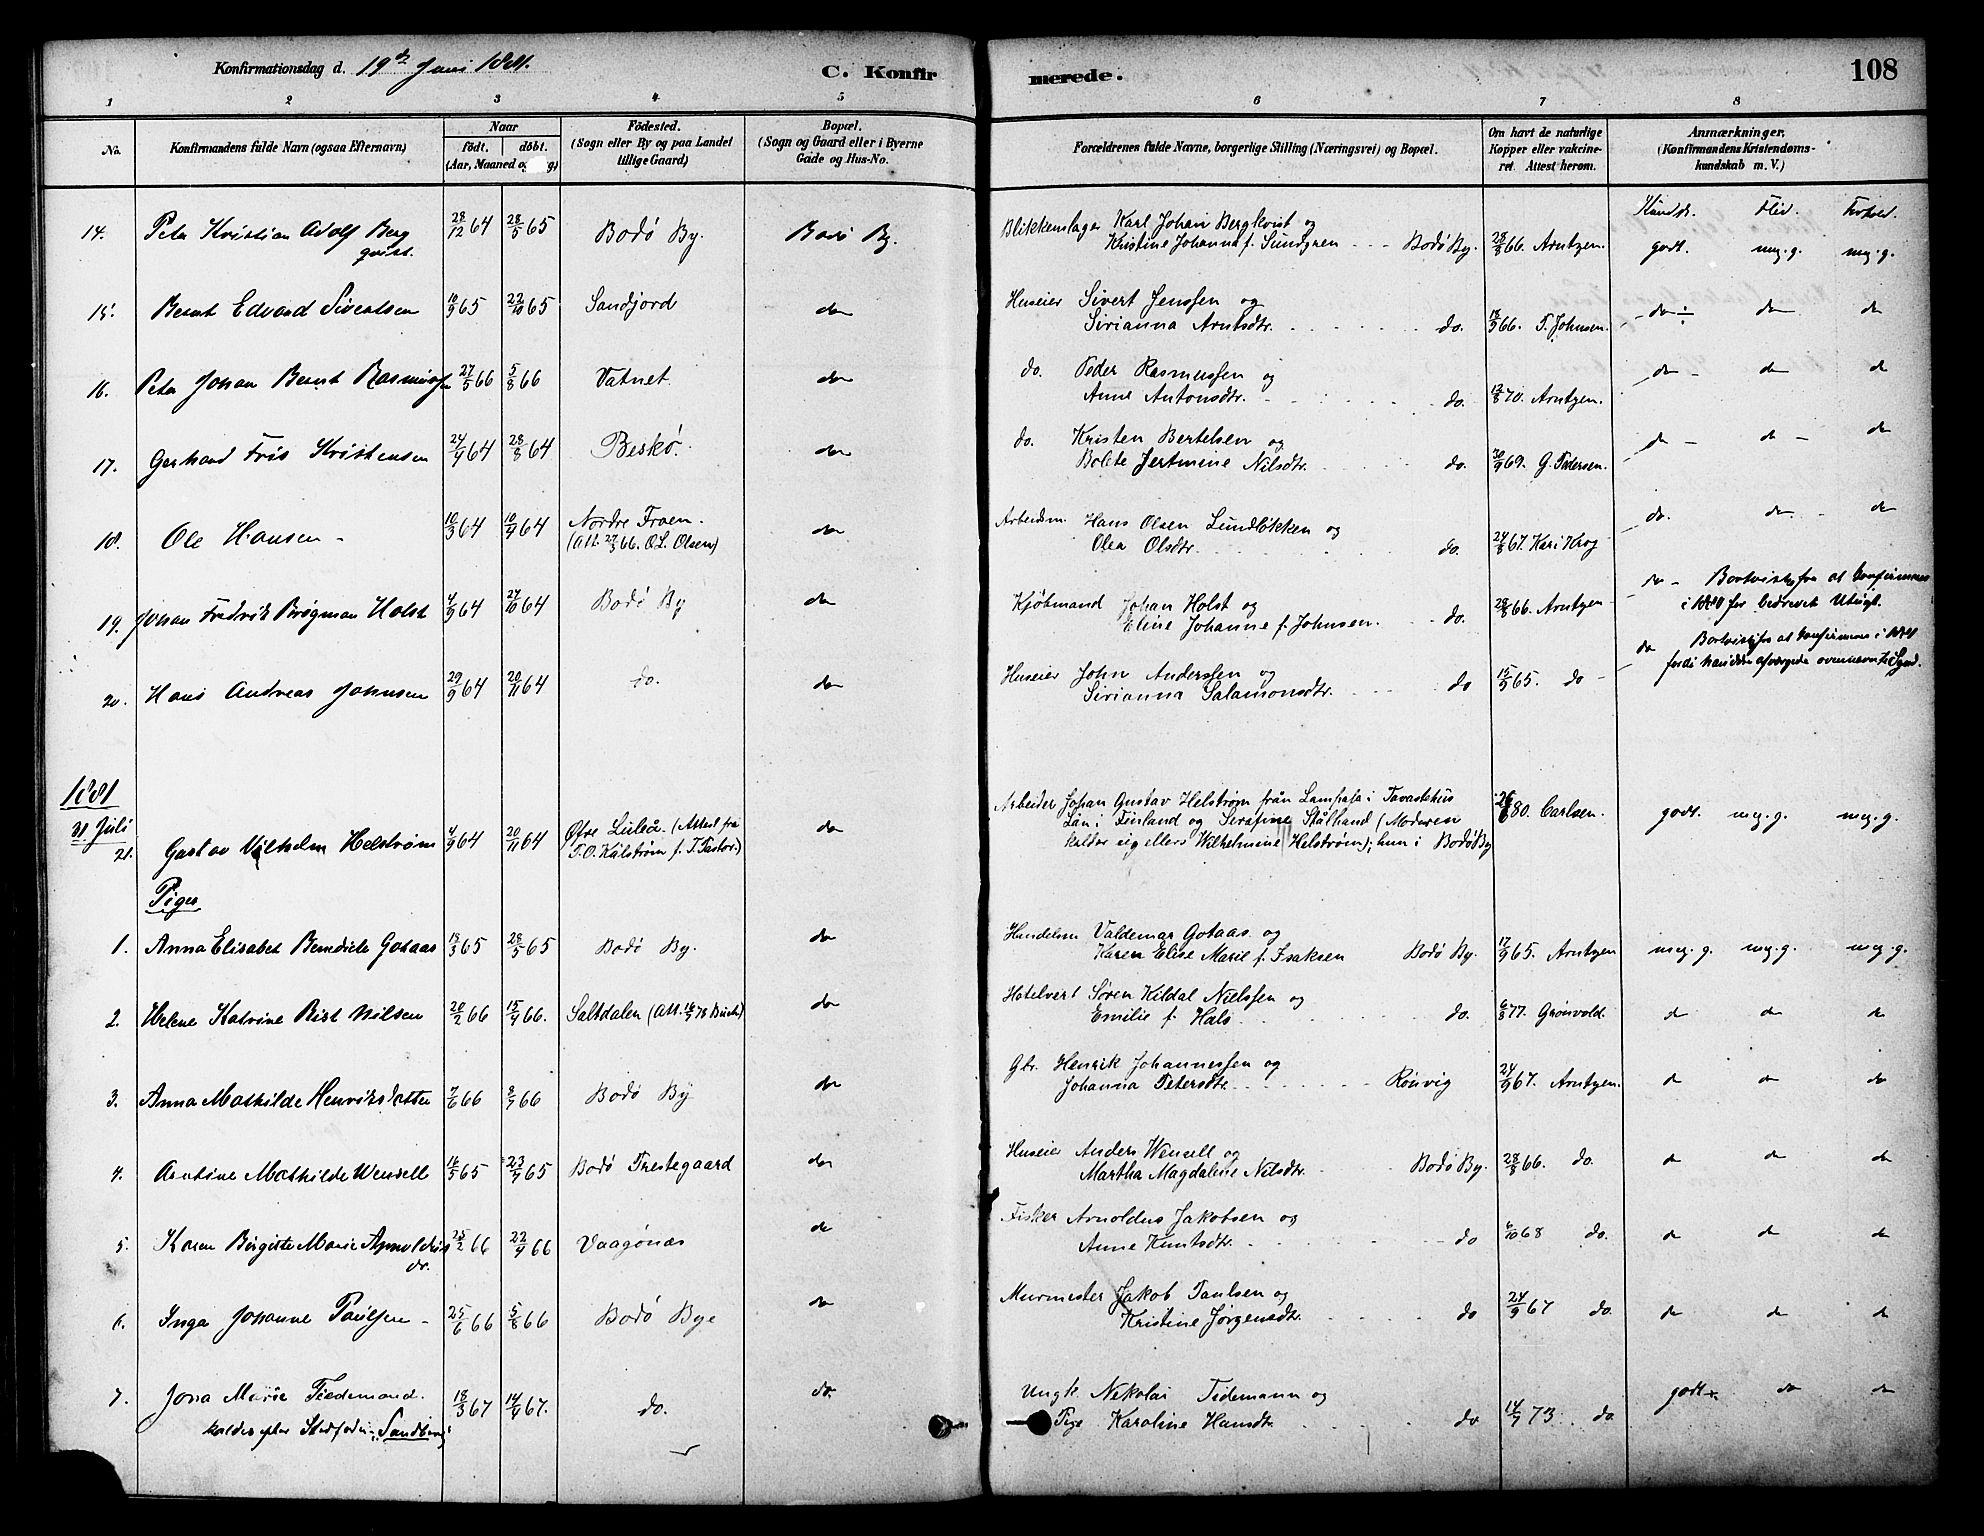 Konfirmationsdag d. 19de Juni 1881.
C. Konfirmerede.
108
1 2 3 4 5 6 7 8
No.
Konfirmandens fulde Navn (ogsaa Efternavn)
Naar
födt. döbt.
(Aar, Maaned og g)
Födested.
(Sogn eller By og paa Landet
tillige Gaard)
Bopæl.
(Sogn og Gaard eller i Byerne
Gade og Hus-No.
Forældrenes fulde Navne, borgerlige Stilling (Næringsvei) og Bopæl.
Om havt de naturlige
Kopper eller vakcine-
ret. Attest herom.
Anmærkninger.
(Konfirmandens Kristendoms-
kundskab m. V.)
Kundsk. Flid. Forhold.
14. Peter Kristian Adolf Berg 28/12 64 28/5 65 Bodö By. Bodö By. Blikkenslager Karl Johan Bergkvist og
qvist. Kristine Johanna f. Sundgren Bodö By. 28/8 66. Arntzen. godt. meg. g. meg. g.
15. Bernt Edvard Sivertsen 10/9 65 22/10 65 Sandjord do Huseier Sivert Jenssen og
Sirianna Arntsdtr. do. 18/9 66. T. Johnsen. do ÷ do do
16. Peter Johan Bernt Rasmussen 27/5 66 5/8 66 Vatnet. do do. Peder Rasmussen og
Anne Antonsdtr. do. 12/8 70. Arntzen. do do do
17. Gerhard Friis Kristensen 24/4 64 28/8 64 Beskö. do do. Kristen Bertelsen og
Bolete Jertmine Nilsdtr. do. 30/9 69. G. Pedersen. do do do
18. Ole Hansen 10/3 64 10/4 64 Nordre Froen. do Arbeidsm. Hans Olsen Lundlökken og
(Att. 27/3 66. O.L. Olsen) Olea Olsdtr. do. 24/8 67. Kari Krog do. do do
19. Johan Fredrik Brögman Holst 4/9 64 27/10 64 Bodö By do Kjöbmand Johan Holst og
Eline Johanne f. Johnsen. do. 28/8 66. Arntzen do Bortvist fra at confirmeres
i 1880 for bedrevet Utugt.
20. Hans Andreas Johnsen 29/9 64 20/11 64 do. do Huseier John Anderssen og
Sirianna Salamonsdtr. do 15/9 65. do do Bortvist fra at confirmeres i 1881
fordi han ikke afværgede ovennævnte Synd.
1881
31 Juli
21. Gustav Vilhelm Helström 4/9 64 20/11 64 Öfre Luleå. (Attest fra do Arbeider Johan Gustav Helström från Lampala i Tavastehus
P.O. Kälström f. T. Pastor.) Län i Finland og Serafine Stålhand (Moderen
kalder sig ellers Wilhelmine Helström); hun i Bodö By 26/6 80. Carlsen. godt. meg. g. meg. g.
Piger
1. Anna Elisabet Benedicte Gotaas 18/3 65 28/5 65 Bodö By. do Handelsm Valdemar Gotaas og
Karen Elise Marie f. Isaksen Bodö By. 17/9 65. Arntzen meg. g. meg. g. meg. g.
2. Helene Katrine Rist Nilsen 20/2 66 15/4 66. Saltdalen (Att. 16/7 78 Buch) do Hotelvert Sören Kildal Nielssen og
Emilie f. Hals do. 6/8 77. Grönvold. do do do
3. Anna Mathilde Henriksdatter 7/6 66 8/7 66 Bodö By do Gbr. Henrik Johannessen og
Johanna Petersdtr. Rönvig 24/9 67. Arntzen. do do do
4. Arntine Mathilde Wensell 16/5 65 23/7 65 Bodö Prestegaard do Huseier Anders Wensell og
Martha Magdalene Nilsdtr. Bodö By. 28/8 66. do. do do do
5. Karen Birgitte Marie Arnoldus 25/2 66 22/4 66 Vaagönæs do Fisker Arnoldus Jakobsen og
dr. Anne Knutsdtr. do 6/10 68 do. do do do
6. Inga Johanne Paulsen 25/6 66 5/8 66 Bodö Bye do Murmester Jakob Paulsen og
Kristine Jörgensdtr. do 24/9 67 do. do do do
7. Jona Marie Tiedemand. 18/3 67 14/4 67. do. do. Ungk. Nikolai Tidemann og
kaldes efter Stedfader „Sandberg" Pige Karoline Hansdtr. do 14/7 73. do. godt do do